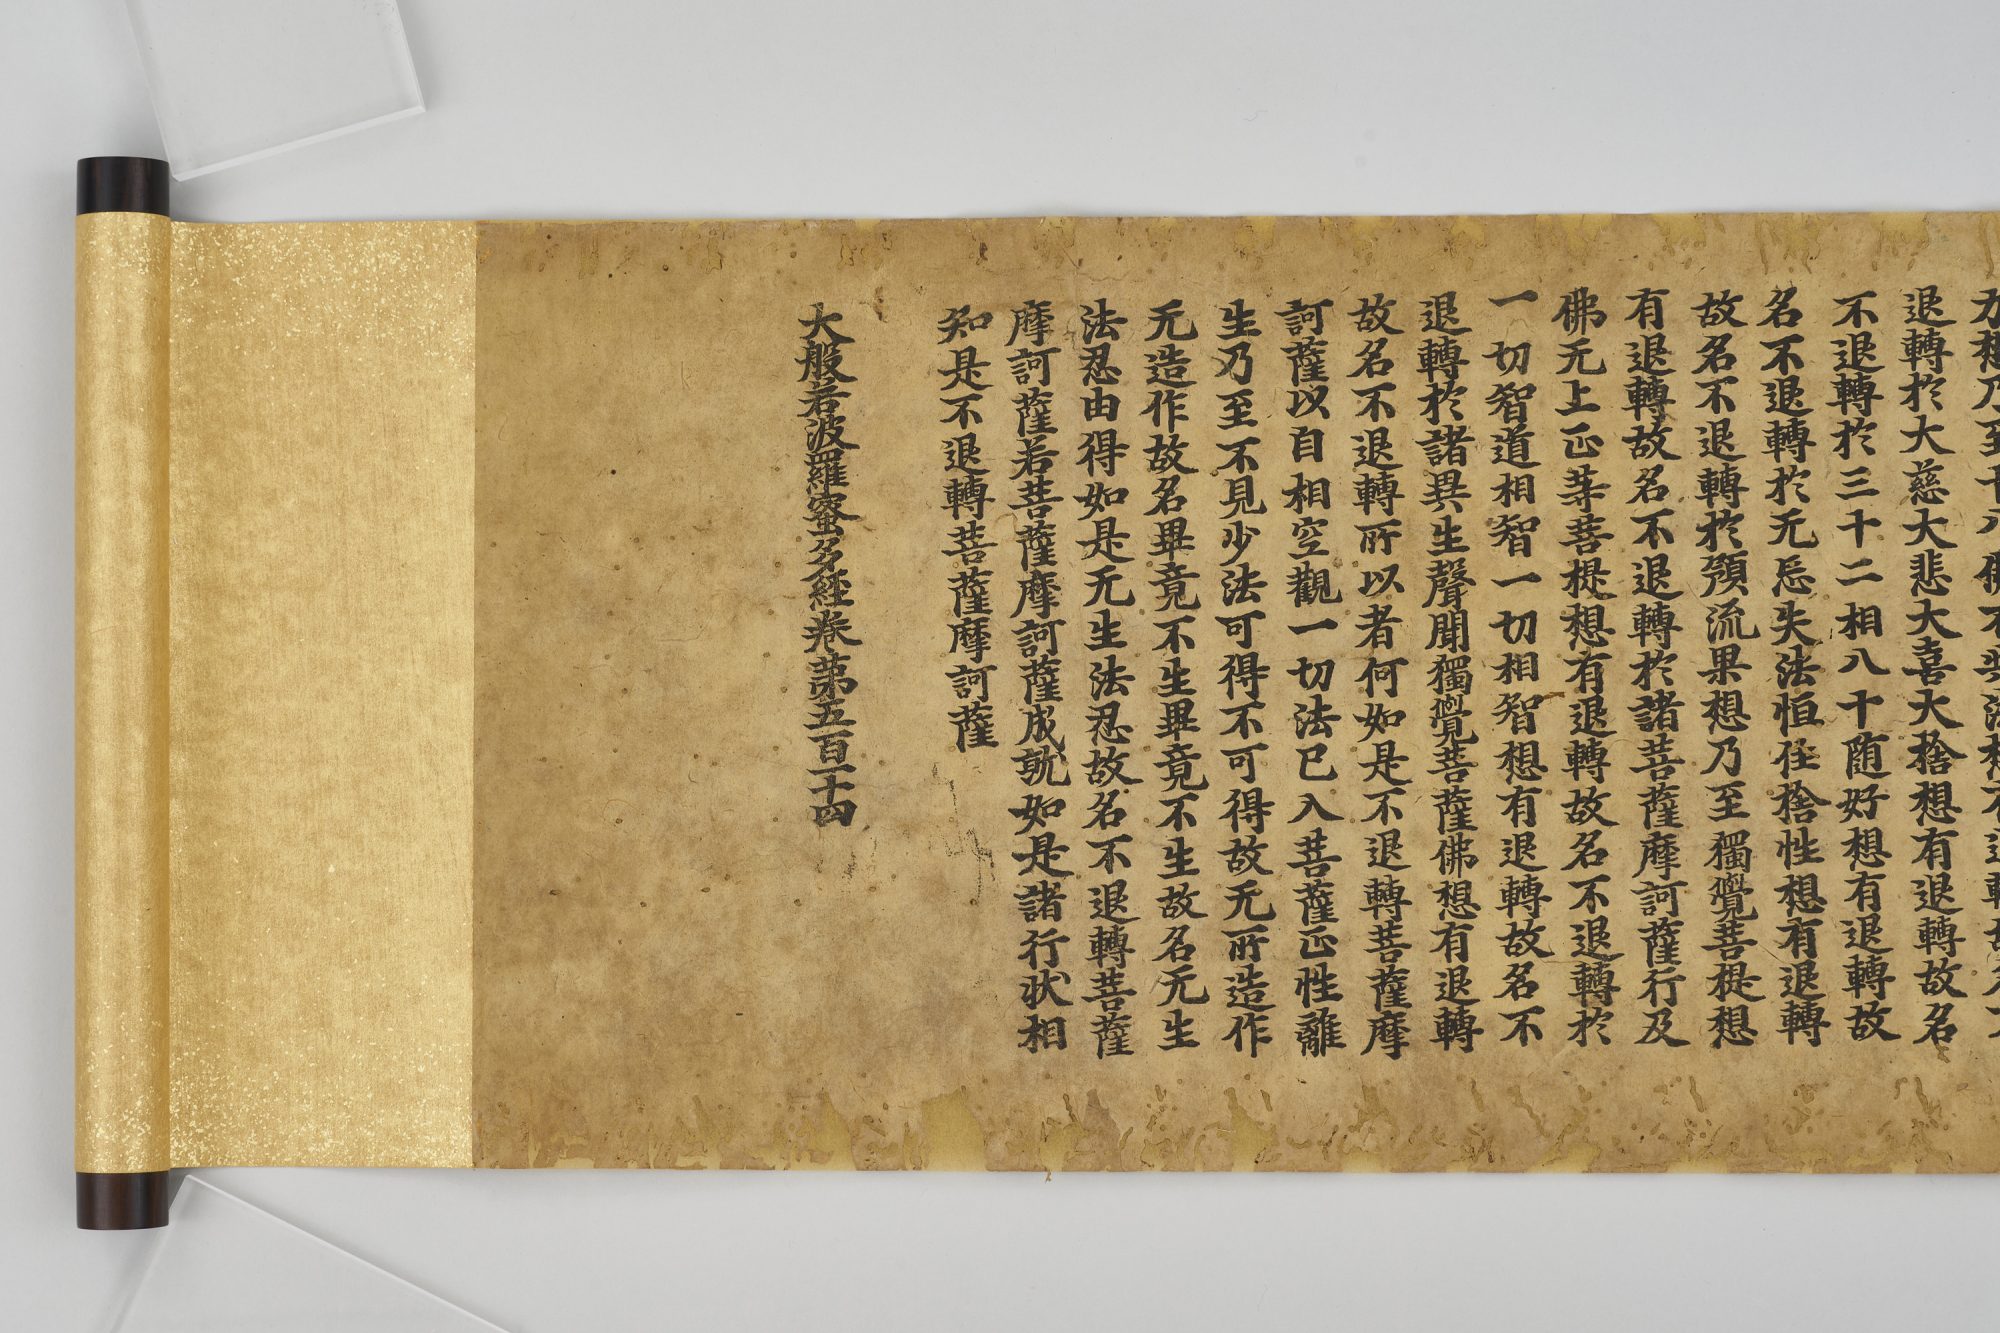 力想乃至十八佛不共法想有退轉故名不
退轉於大慈大悲大喜大捨想有退轉故名
不退轉於三十二相八十随好想有退轉故
名不退轉於无忘失法恒住捨性想有退轉
故名不退轉於預流果想乃至獨覺菩提想
有退轉故名不退轉於諸菩薩摩訶薩行及
佛无上正等菩提想有退轉故名不退轉於
一切智道相智一切相智想有退轉故名不
退轉於諸異生聲聞獨覺菩薩佛想有退轉
故名不退轉所以者何如是不退轉菩薩摩
訶薩以自相空觀一切法已入菩薩正性離
生乃至不見少法可得不可得故无所造作
无造作故名畢竟不生畢竟不生故名无生
法忍由得如是无生法忍故名不退轉菩薩
摩訶薩若菩薩摩訶薩成就如是諸行状相
知是不退轉菩薩摩訶薩
大般若波羅蜜多經卷第五百一十四